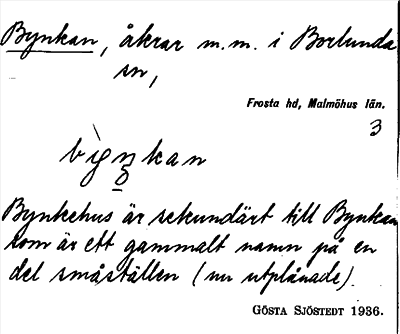 Bynkan, åkrar m.m. i Borlunda
sn,
Frosta hd, Malmöhus län.
3
bìgnkan
Bynkehus är sekundärt till Bynkan
som är ett gammalt namn på en
del småställen (nu utplånade).
GÖSTA SJÖSTEDT 1936.